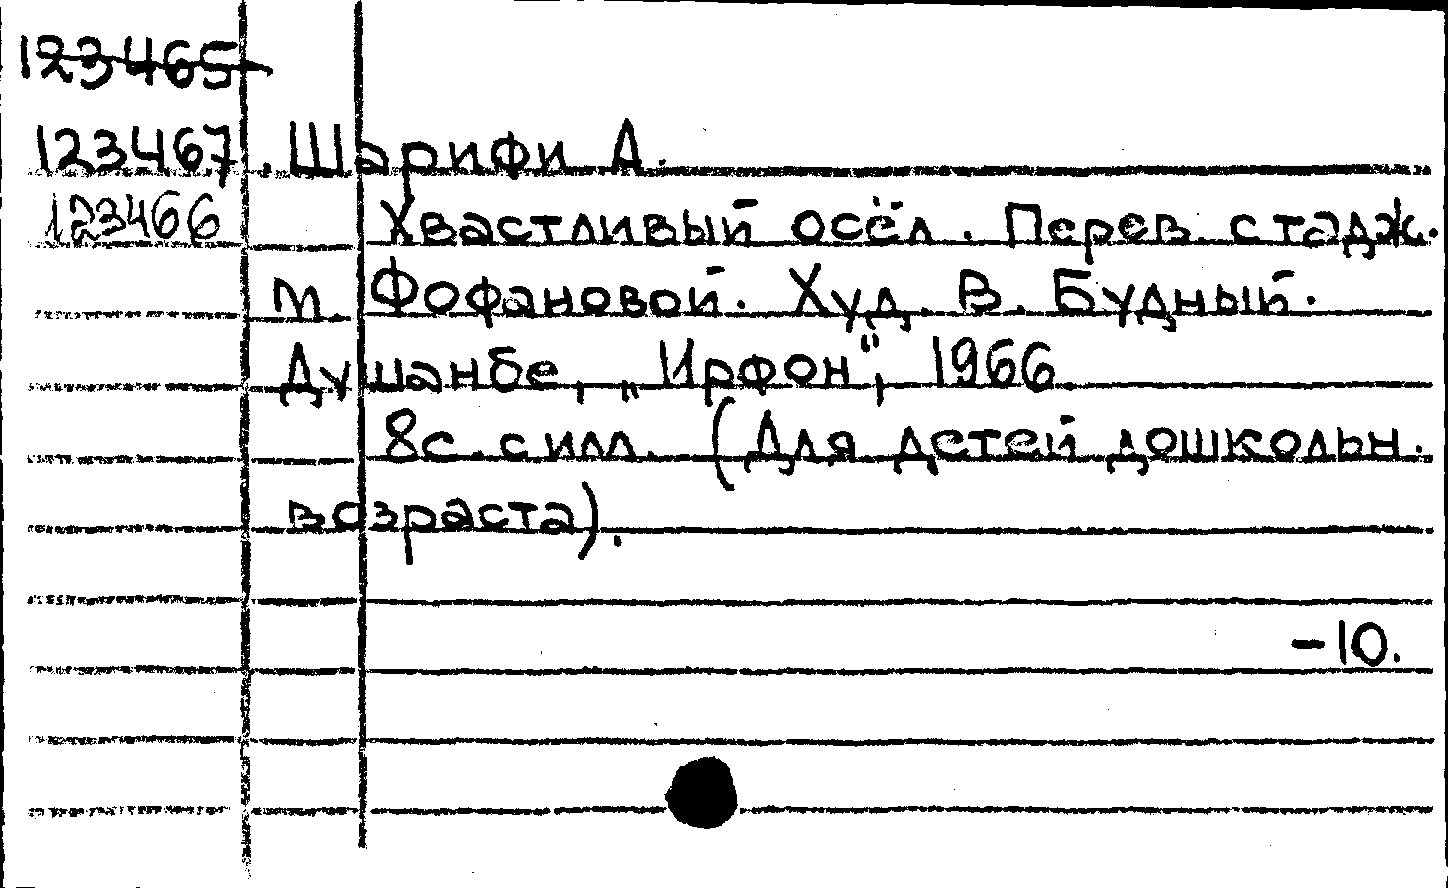 123465
123467 Шарифи А.
123466 Хвастливый осёл. Перев. с тадж.
т. Фофановой. Худ. В. Будный.
Душанбе, „Ирфон", 1966.
8с. с илл. (Для детей дошкольн.
возраста).
-10.